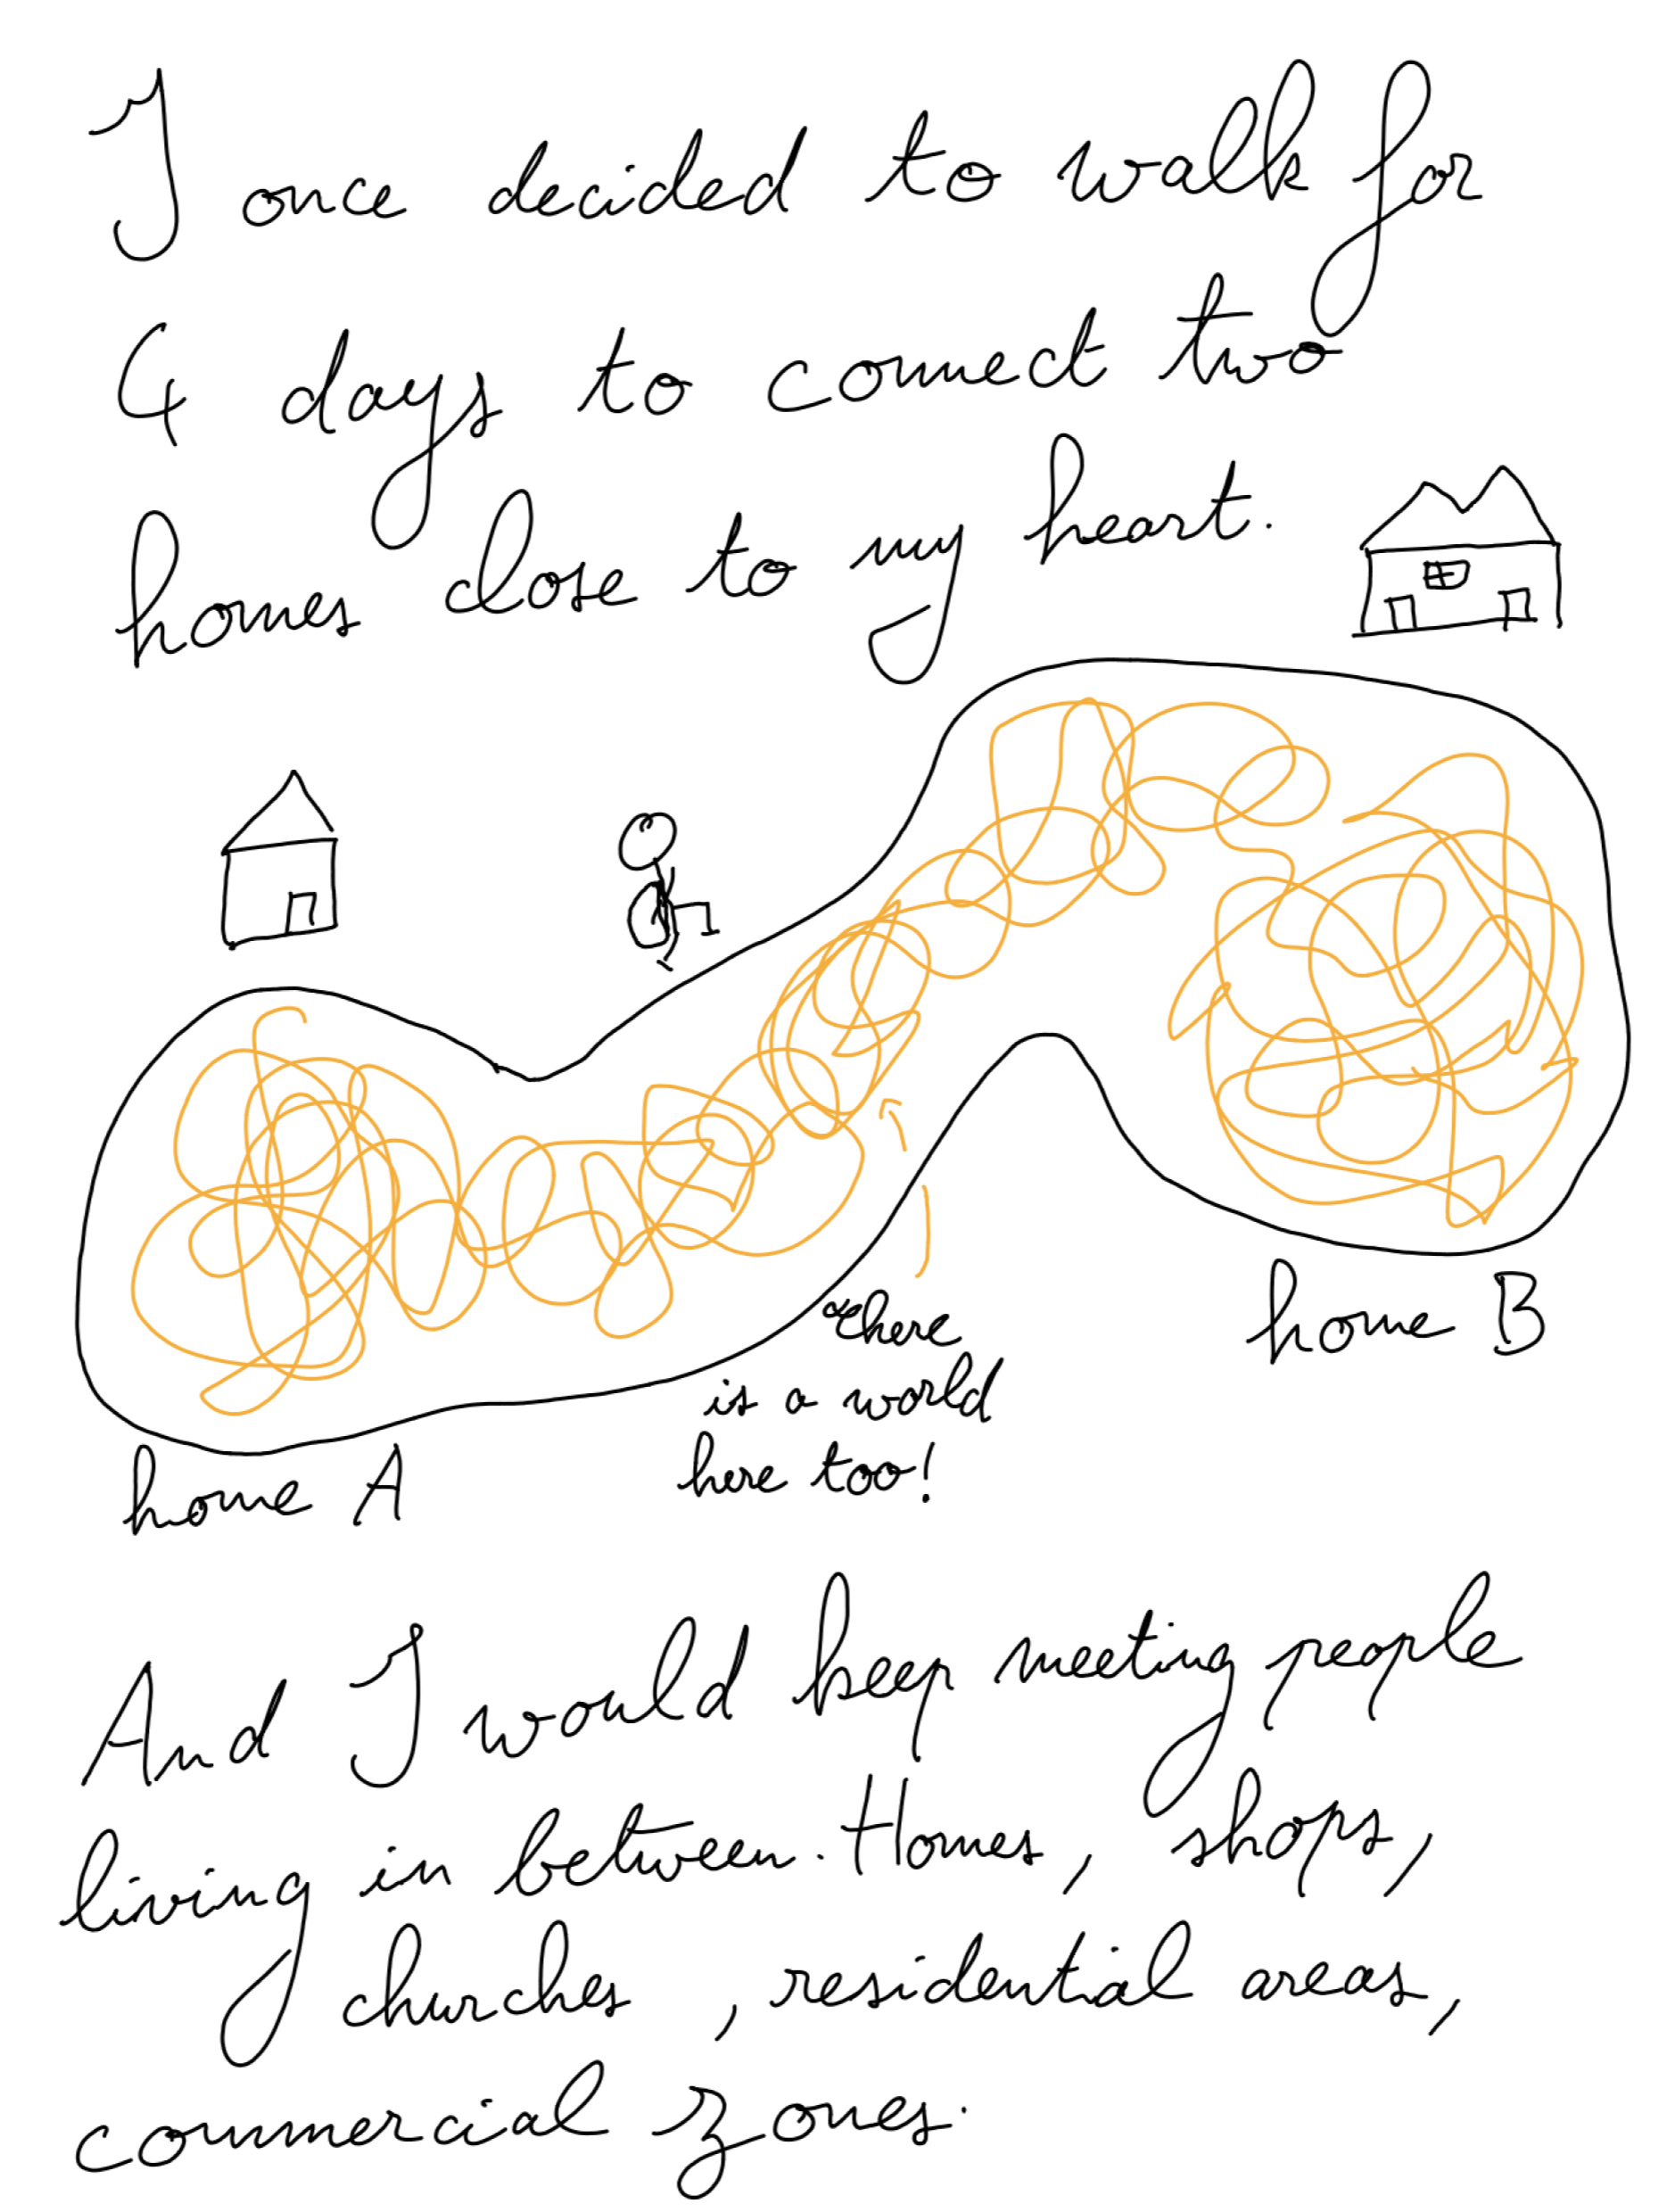 I once decided to walk for
4 days to connect two
homes close to my heart.
there
is a world
here too!
home B
home A
And I would keep meeting people
living in between. Homes, shops,
churches, residential areas,
commercial zones.